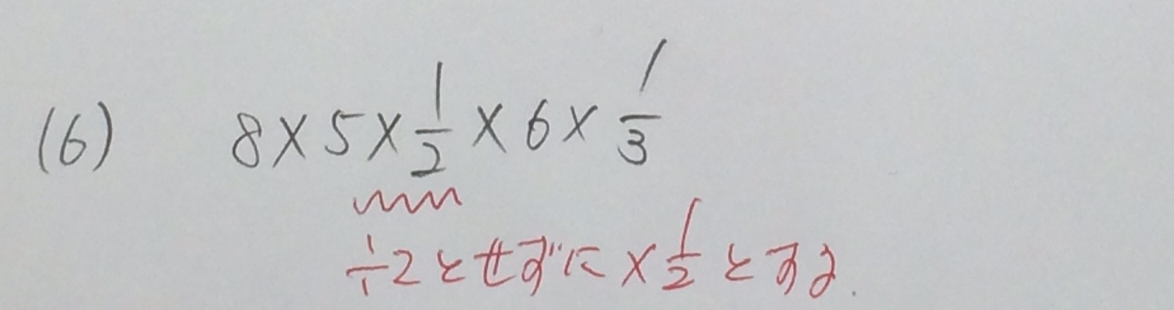 (6) 8×5×1/2×6×1/3
÷2とせずに×1/2とする.